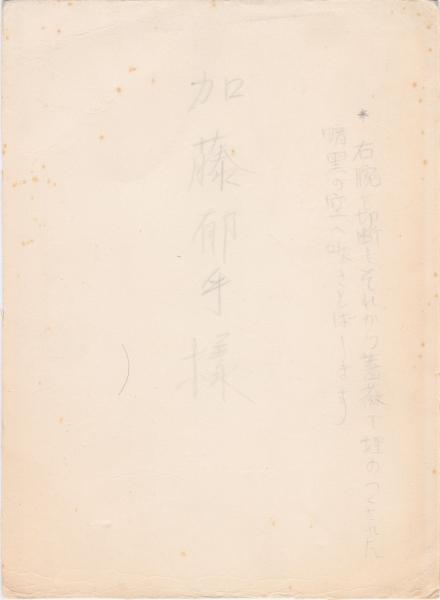 * 右腕を切断しそれから薔薇で埋めつくされた
暗雲の空へ吹きとばします
加藤郁乎様